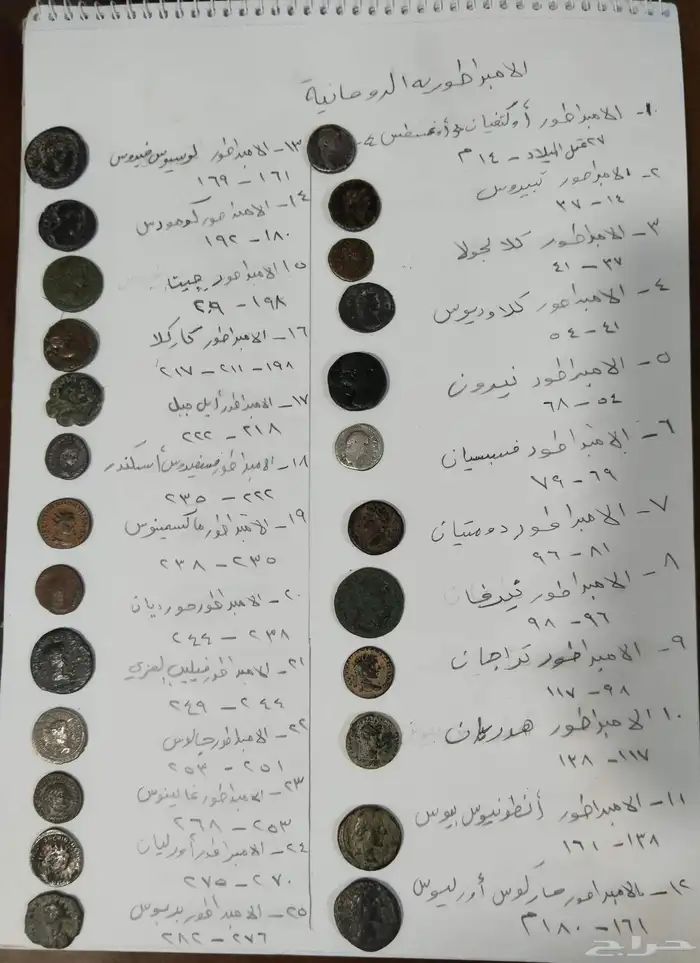 الامبراطوريه الرومانية
١- الامبراطور أوكتفيان أو أغسطس
٢٧ قبل الميلاد - ١٤ م
٢- الامبراطور تيبيروس
١٤ - ٣٧
٣- الامبراطور كلا لجولا
٣٧ - ٤١
٤- الامبراطور كلاوديوس
٤١ - ٥٤
٥- الامبراطور نيرون
٥٤ - ٦٨
٦- الامبراطور فسبسيان
٦٩ - ٧٩
٧- الامبراطور دومتيان
٨١ - ٩٦
٨- الامبراطور
٩٦ - ٩٨
٩- الامبراطور تراجان
٩٨ - ١١٧
١٠- الامبراطور هدريان
١١٧ - ١٣٨
١١- الامبراطور أنطونيوس بيوس
١٣٨ - ١٦١
١٢- الامبراطور ماركوس أورليوس
١٦١ - ١٨٠ م
١٣- الامبراطور لوسيوس فيروس
١٦١ - ١٦٩
١٤- الامبراطور كومودس
١٨٠ - ١٩٢
١٥- الامبراطور جيتا
١٩٨ - ٢٠٩
١٦- الامبراطور كاركلا
١٩٨ - ٢١١ - ٢١٧
١٧- الامبراطور أيل جبل
٢١٨ - ٢٢٢
١٨- الامبراطور أسكندر
٢٢٢ - ٢٣٥
١٩- الامبراطور ماكسيمنوس
٢٣٥ - ٢٣٨
٢٠- الامبراطور جورديان
٢٣٨ - ٢٤٤
٢١- الامبراطور فيليب العربي
٢٤٤ - ٢٤٩
٢٢- الامبراطور جالوس
٢٥١ - ٢٥٣
٢٣- الامبراطور غالينوس
٢٥٣ - ٢٦٨
٢٤- الامبراطور أورليان
٢٧٠ - ٢٧٥
٢٥- الامبراطور بربوس
٢٧٦ - ٢٨٢
حراج